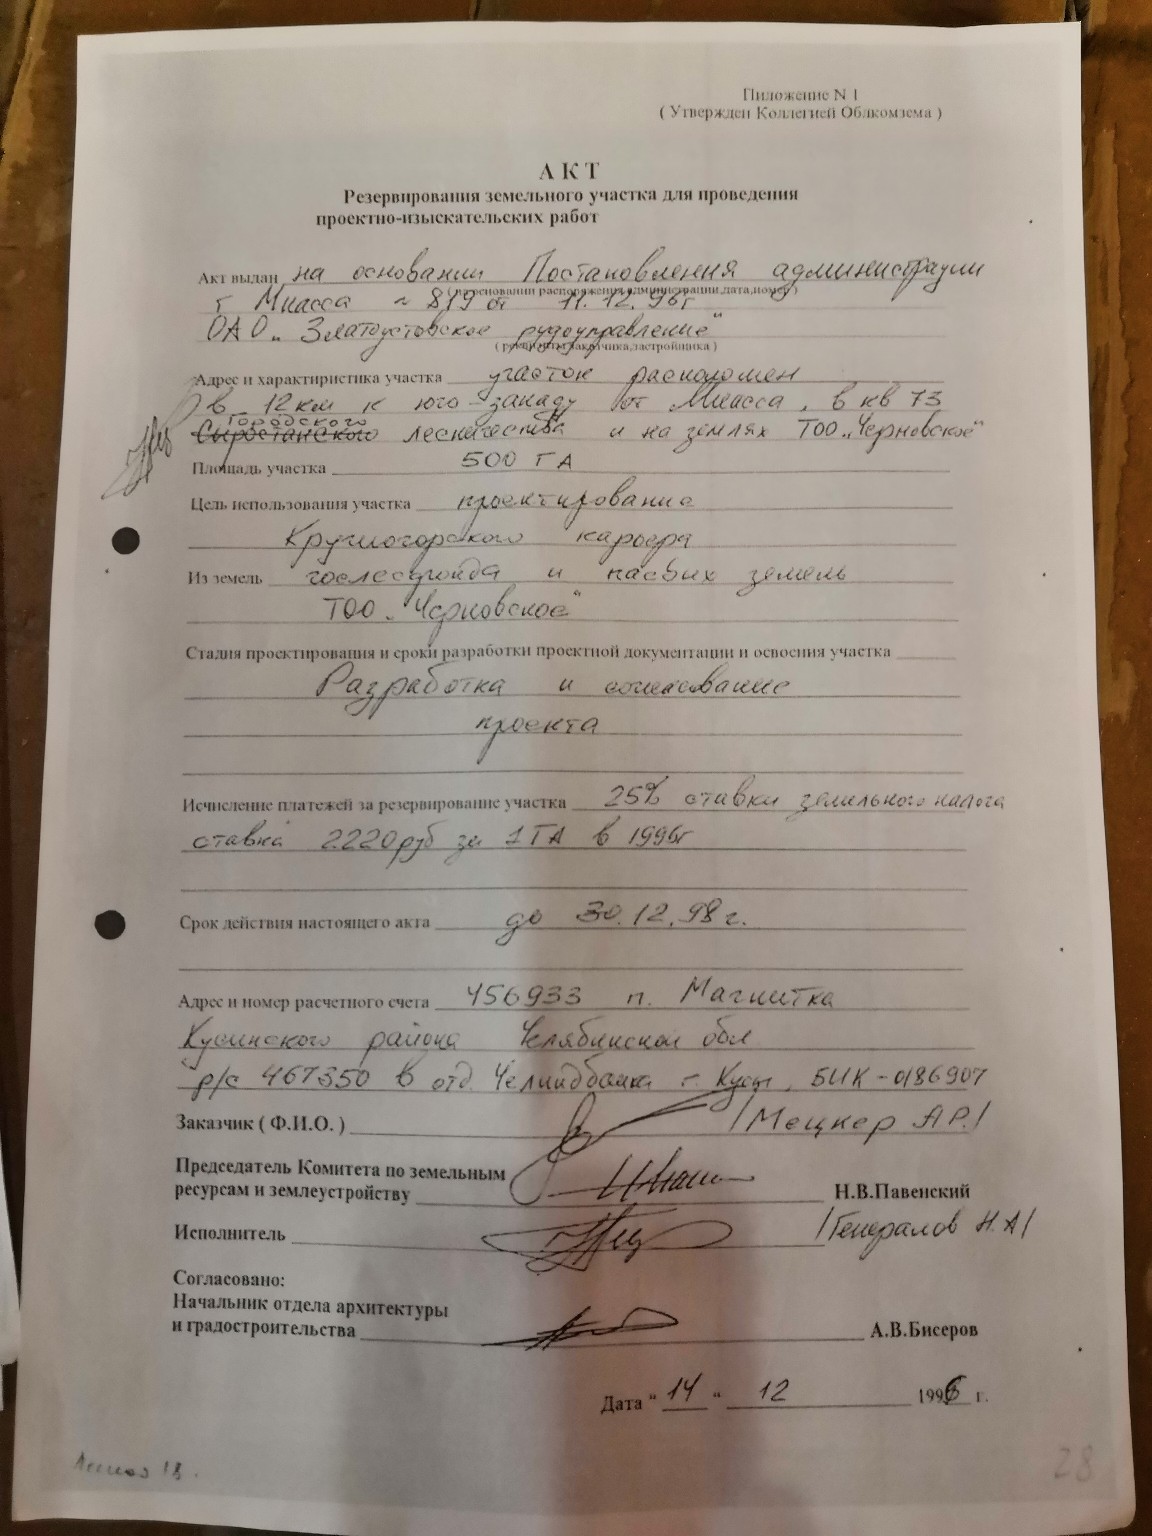 Пиложение N 1
( Утвержден Коллегией Облкомзема )
А К Т
Резервирования земельного участка для проведения
проектно-изыскательских работ
Акт выдан на основании Постановления администрации
( на основании распоряжения администрации,дата,номер )
г Миасса № 819 от 11.12.96г
ОАО „Златоустовское рудоуправление"
( реквизиты заказчика,застройщика )
Адрес и характиристика участка участок расположен
в 12км к юго-западу от Миасса, в кв 73
Городского
Сыростанского лесничества и на землях ТОО „Черновское"
Площадь участка 500 ГА
Цель использования участка проектирование
Круглогорского карьера
Из земель гослесфонда и паевых земель
ТОО „Черновское"
Стадия проектирования и сроки разработки проектной документации и освоения участка
Разработка и согласование
проекта
Исчисление платежей за резервирование участка 25% ставки земельного налога
ставка 2220руб за 1 ГА в 1996г
Срок действия настоящего акта до 30.12.98г.
Адрес и номер расчетного счета 456933 п. Магнитка
Кусинского района Челябинской обл
р/с 467350 в отд. Челиндбанка г. Кусы, БИК-0186907
Заказчик ( Ф.И.О. ) /Мецкер А.Р./
Председатель Комитета по земельным
ресурсам и землеустройству Н.В.Павенский
Исполнитель /Генералов Н.А/
Согласовано:
Начальник отдела архитектуры
и градостроительства А.В.Бисеров
Дата " 14 " 12 1996 г.
28